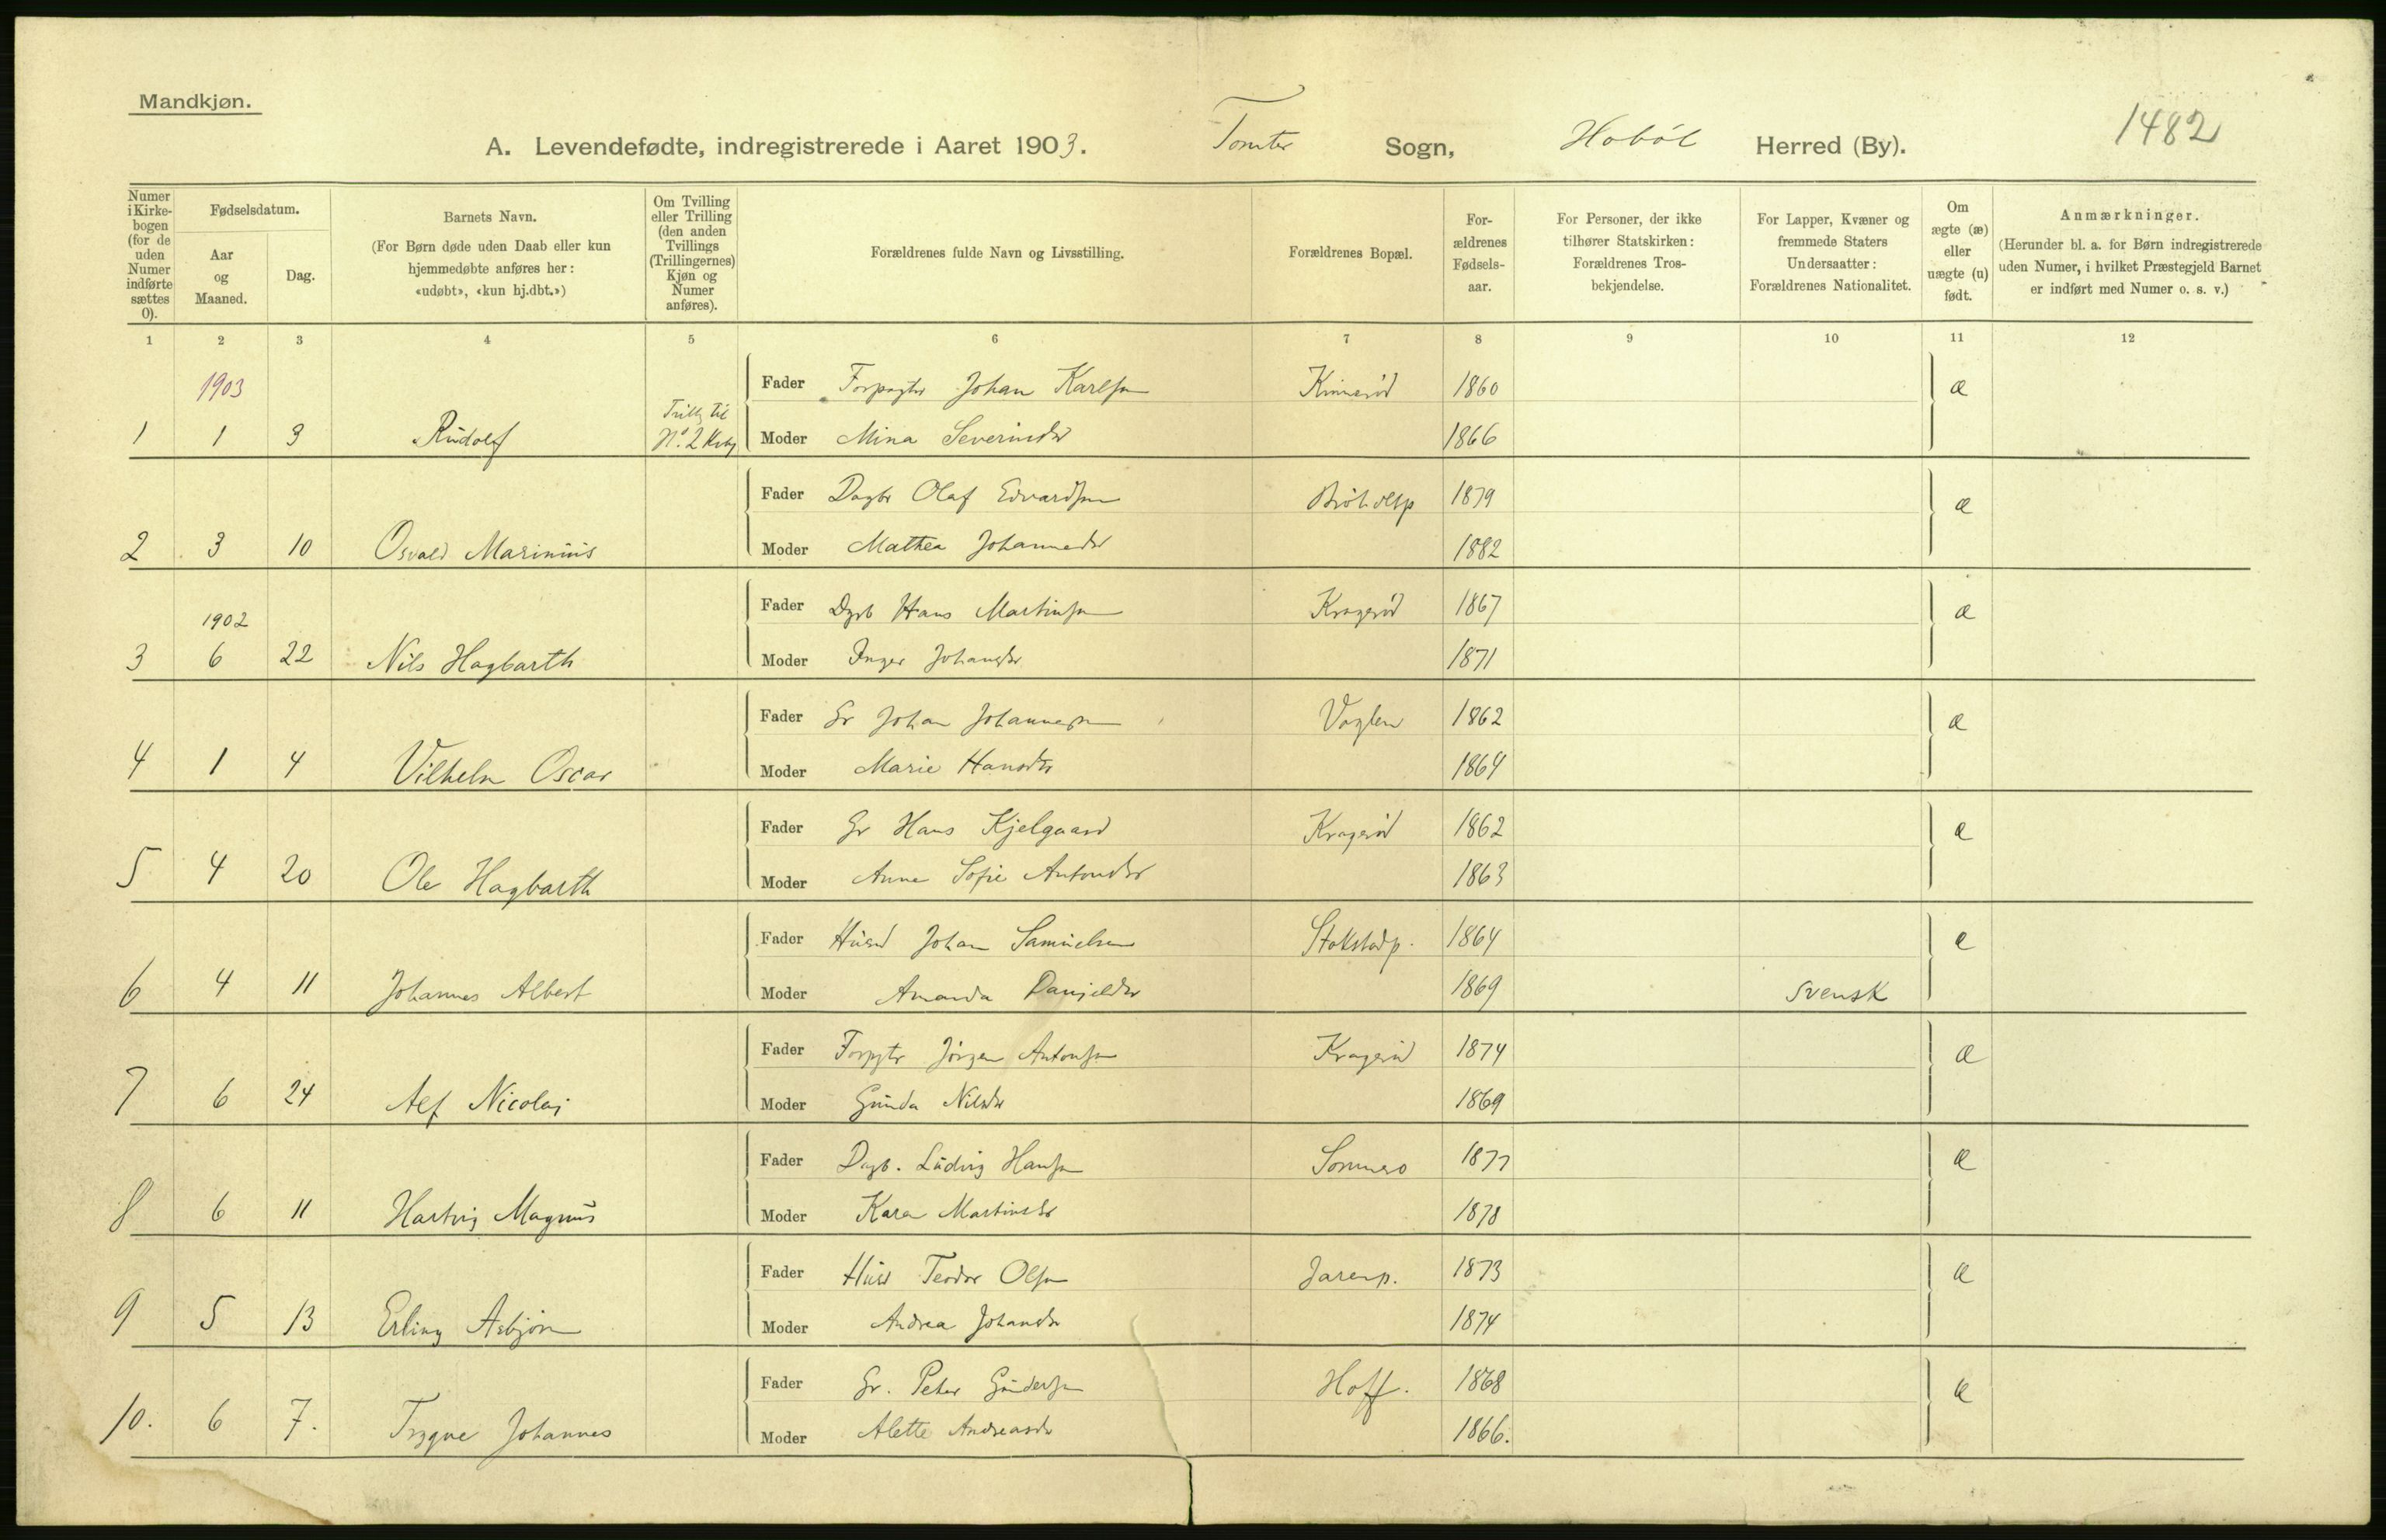 Mandkjøn.
1482
A. Levendefødte, indregistrerede i Aaret 1903. Tomter Sogn, Hobøl Herred (By).
Numer i Kirkebogen (for de uden Numer indførte sættes 0).
Fødselsdatum.
Aar og Maaned.
Dag.
Barnets Navn.
(For Børn døde uden Daab eller kun hjemmedøbte anføres her: «udøbt», «kun hj.dbt.»)
Om Tvilling eller Trilling (den anden Tvillings (Trillingernes) Kjøn og Numer anføres).
Forældrenes fulde Navn og Livsstilling.
Forældrenes Bopæl.
Forældrenes Fødselsaar.
For Personer, der ikke tilhører Statskirken: Forældrenes Trosbekjendelse.
For Lapper, Kvæner og fremmede Staters Undersaatter: Forældrenes Nationalitet.
Om ægte (æ) eller uægte (u) født.
Anmærkninger.
(Herunder bl. a. for Børn indregistrerede uden Numer, i hvilket Præstegjeld Barnet er indført med Numer o. s. v.)
1 2 3 4 5 6 7 8 9 10 11 12
1903 Fader Forpagter Johan Karlsen 1860 æ
1 1 3 Rudolf til No. 2 Moder Mina Severinsdr 1866
Fader Dagbr Olaf Edvardsen 1879 æ
2 3 10 Osvald Marinius Moder Mathea Johannesdr 1882
1902 Fader Dgrb Hans Martinsen Kragerød 1867 æ
3 6 22 Nils Hagbarth Moder Inger Johansdr 1871
Fader Gr Johan Johannesen Vaglen 1862 æ
4 1 4 Vilhelm Oscar Moder Marie Hansdtr 1864
Fader Gr Hans Kjelgaard Kragerød 1862 æ
5 4 20 Ole Hagbarth Moder Anne Sofie Antonsdr 1863
Fader Husmd Johan Samuelsen Stokstadp. 1864 æ
6 4 11 Johannes Albert Moder Amanda Danjelsdr 1869 Svensk
Fader Forpgtr Jörgen Antonsen Kragerød 1874 æ
7 6 24 Alf Nicolai Moder Gunda Nilsdr 1869
Fader Dagb. Ludvig Hansen Sommero 1877 æ
8 6 11 Hartvig Magnus Moder Karen Martinsdr 1878
Fader Husm Teodor Olsen Jarenp. 1873 æ
9 5 13 Erling Asbjørn Moder Andrea Johansdr 1874
Fader Gr. Peter Gundersen Hoff. 1868 æ
10. 6 7. Trygve Johannes Moder Alette Andreasdr 1866.